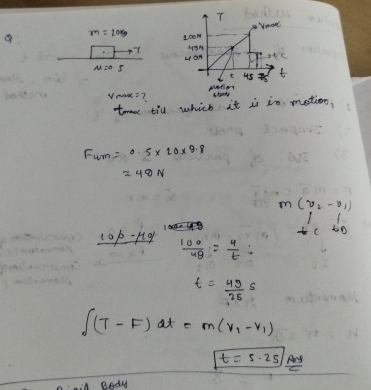 Q
m = 20kg
→T
μ = 0.5
T
Vmax
100N
49N
40N
t c 4s 7s t
motion starts
Vmax = ?
tmax till which it is in motion,
Flim = 0.5 x 10 x 9.8
= 49 N
m (v2 - v1)
tc to
100/49 = 4/t ;
t = 49/25 s
∫(T - F) dt = m(v2 - v1)
t = 5.25) Ans
Rigid Body